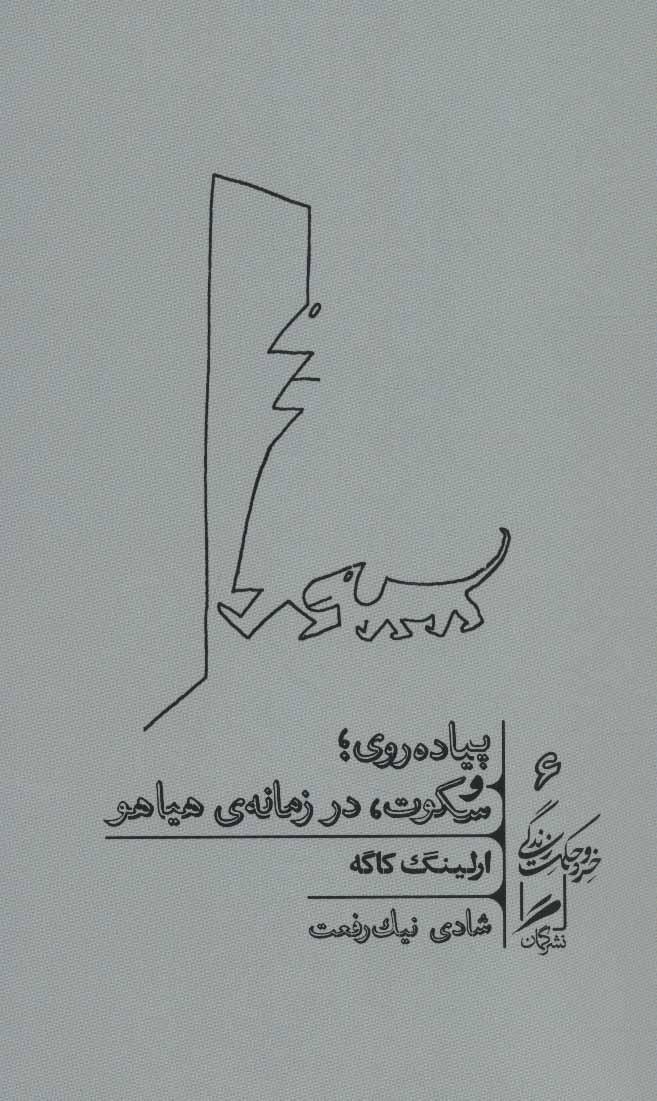 پیاده‌روی؛
و
سکوت، در زمانه‌ی هیاهو
ارلینگ کاگه
شادی نیک‌رفعت
۶
خرد و حکمت زندگی
نشر گمان